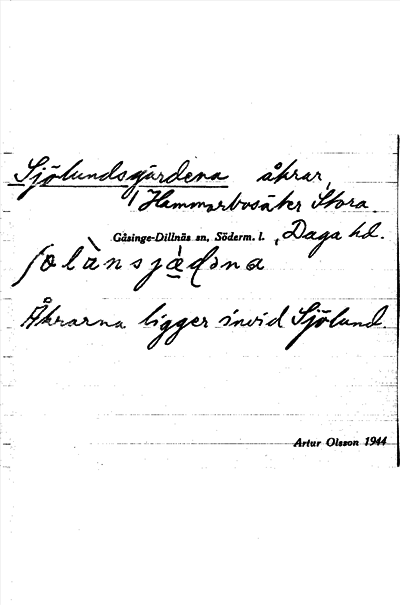 Sjölundsgärdena åkrar,
Hammarbosäter Stora
Gåsinge-Dillnäs sn, Söderm. l., Daga hd.
Åkrarna ligger invid Sjölund
Artur Olsson 1944